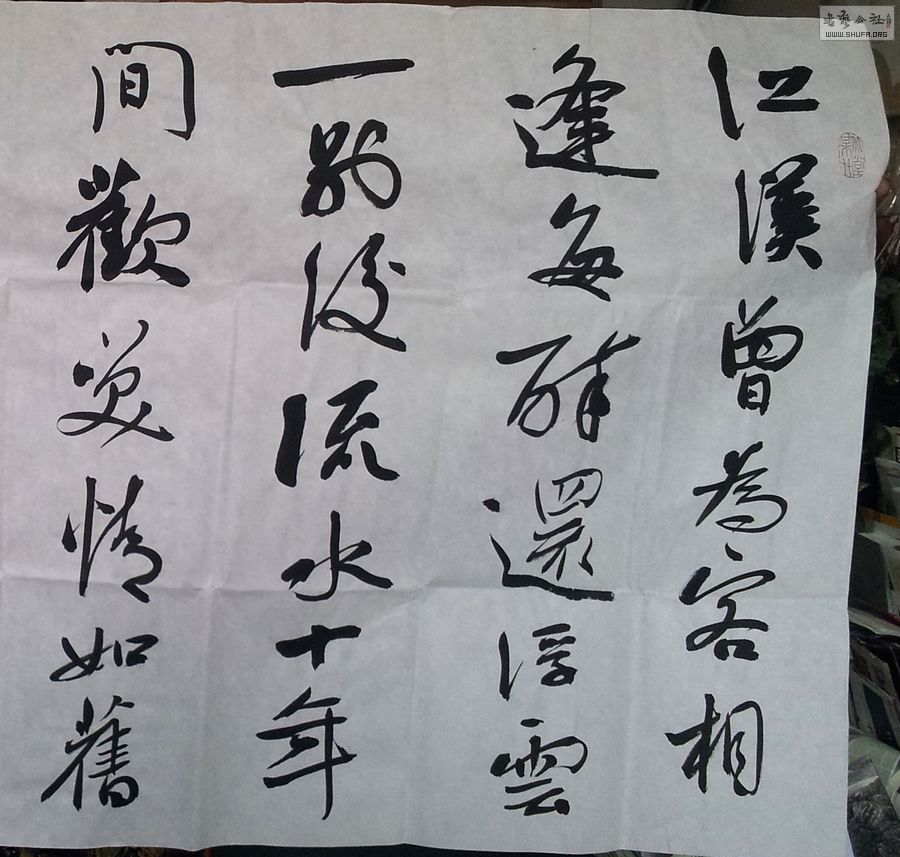 江漢曾為客相
逢每醉還浮雲
一別後流水十年
間歡笑情如舊
書藝公社
WWW.SHUFA.ORG